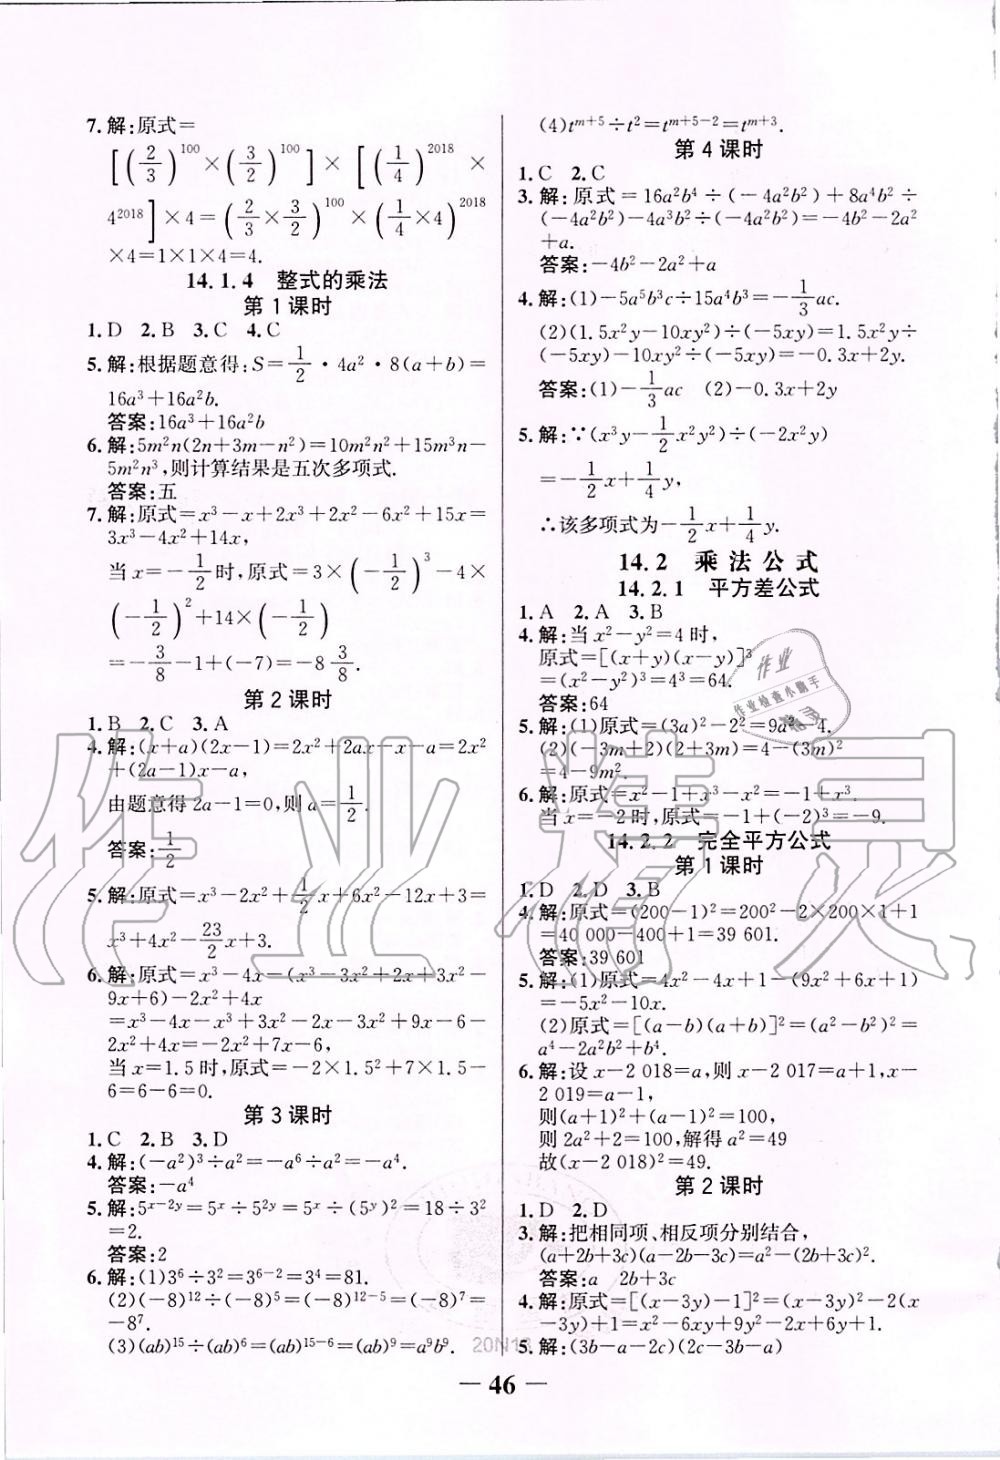 7. 解:原式=
[(2/3)^100×(3/2)^100]×[(1/4)^2018×
4^2018]×4=(2/3×3/2)^100×(1/4×4)^2018
×4=1×1×4=4.
14.1.4 整式的乘法
第1课时
1. D 2. B 3. C 4. C
5. 解:根据题意得:S=1/2·4a²·8(a+b)=
16a³+16a²b.
答案:16a³+16a²b
6. 解:5m²n(2n+3m-n²)=10m²n²+15m³n-
5m²n³,则计算结果是五次多项式.
答案:五
7. 解:原式=x³-x+2x³+2x²-6x²+15x=
3x³-4x²+14x,
当x=-1/2时,原式=3×(-1/2)³-4×
(-1/2)²+14×(-1/2)
=-3/8-1+(-7)=-8 3/8.
第2课时
1. B 2. C 3. A
4. 解:(x+a)(2x-1)=2x²+2ax-x-a=2x²
+(2a-1)x-a,
由题意得2a-1=0,则a=1/2.
答案:1/2
5. 解:原式=x³-2x²+1/2x+6x²-12x+3=
x³+4x²-23/2x+3.
6. 解:原式=x³-4x-(x³-3x²+2x+3x²-
9x+6)-2x²+4x
=x³-4x-x³+3x²-2x-3x²+9x-6-
2x²+4x=-2x²+7x-6,
当x=1.5时,原式=-2×1.5²+7×1.5-
6=6-6=0.
第3课时
1. C 2. B 3. D
4. 解:(-a²)³÷a²=-a⁶÷a²=-a⁴.
答案:-a⁴
5. 解:5^(x-2y)=5^x÷5^(2y)=5^x÷(5^y)²=18÷3²
=2.
答案:2
6. 解:(1)3⁶÷3²=3^(6-2)=3⁴=81.
(2)(-8)^12÷(-8)^5=(-8)^(12-5)=(-8)^7=
-8⁷.
(3)(ab)^15÷(ab)^6=(ab)^(15-6)=(ab)^9=a⁹b⁹.
(4)t^(m+5)÷t²=t^(m+5-2)=t^(m+3).
第4课时
1. C 2. C
3. 解:原式=16a²b⁴÷(-4a²b²)+8a⁴b²÷
(-4a²b²)-4a³b²÷(-4a²b²)=-4b²-2a²
+a.
答案:-4b²-2a²+a
4. 解:(1)-5a⁵b³c÷15a⁴b³=-1/3ac.
(2)(1.5x²y-10xy²)÷(-5xy)=1.5x²y÷
(-5xy)-10xy²÷(-5xy)=-0.3x+2y.
答案:(1)-1/3ac (2)-0.3x+2y
5. 解:∵(x³y-1/2x²y²)÷(-2x²y)
=-1/2x+1/4y,
∴该多项式为-1/2x+1/4y.
14.2 乘法公式
14.2.1 平方差公式
1. A 2. A 3. B
4. 解:当x²-y²=4时,
原式=[(x+y)(x-y)]³
=(x²-y²)³=4³=64.
答案:64
5. 解:(1)原式=(3a)²-2²=9a²-4.
(2)(-3m+2)(2+3m)=4-(3m)²
=4-9m².
6. 解:原式=x²-1+x³-x²=-1+x³.
当x=-2时,原式=-1+(-2)³=-9.
14.2.2 完全平方公式
第1课时
1. D 2. D 3. B
4. 解:原式=(200-1)²=200²-2×200×1+1
=40 000-400+1=39 601.
答案:39 601
5. 解:(1)原式=4x²-4x+1-(9x²+6x+1)
=-5x²-10x.
(2)原式=[(a-b)(a+b)]²=(a²-b²)²=
a⁴-2a²b²+b⁴.
6. 解:设x-2 018=a,则x-2 017=a+1,x-
2 019=a-1,
则(a+1)²+(a-1)²=100,
则2a²+2=100,解得a²=49
故(x-2 018)²=49.
第2课时
1. D 2. D
3. 解:把相同项、相反项分别结合,
(a+2b+3c)(a-2b-3c)=a²-(2b+3c)².
答案:a 2b+3c
4. 解:原式=[(x-3y)-1]²=(x-3y)²-2(x-
3y)+1=x²-6xy+9y²-2x+6y+1.
5. 解:(3b-a-2c)(2c+3b-a)
— 46 —
作业精灵
作业检查小助手